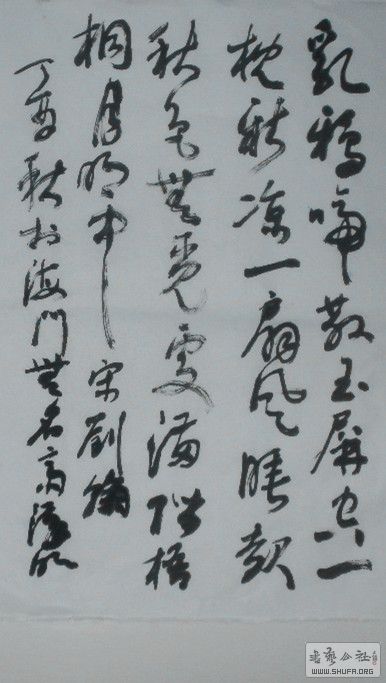 乳鸦啼散玉屏空一
枕新凉一扇风睡起
秋色无觅处满阶梧
桐月明中 宋刘翰
丁酉秋于海门无名斋
书艺公社
WWW.SHUFA.ORG